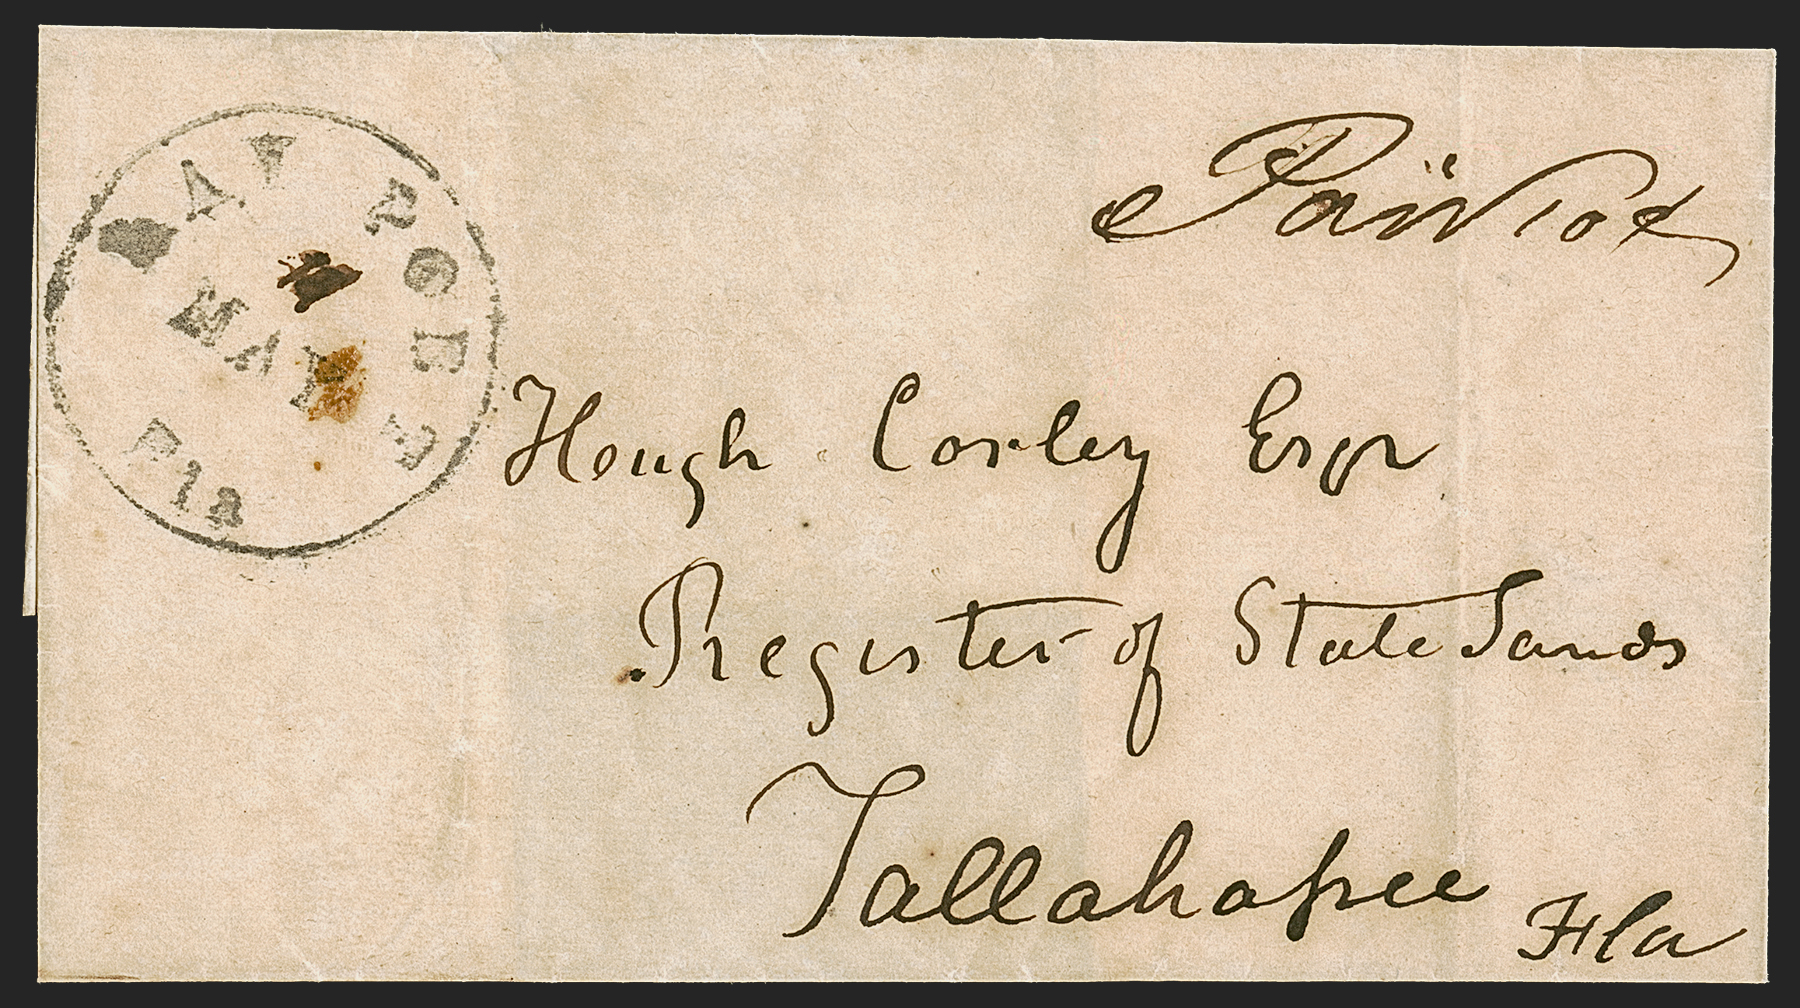 MAY
Fla
Paid 10¢
Hough Corley Esqr
Register of State Lands
Tallahassee
Fla